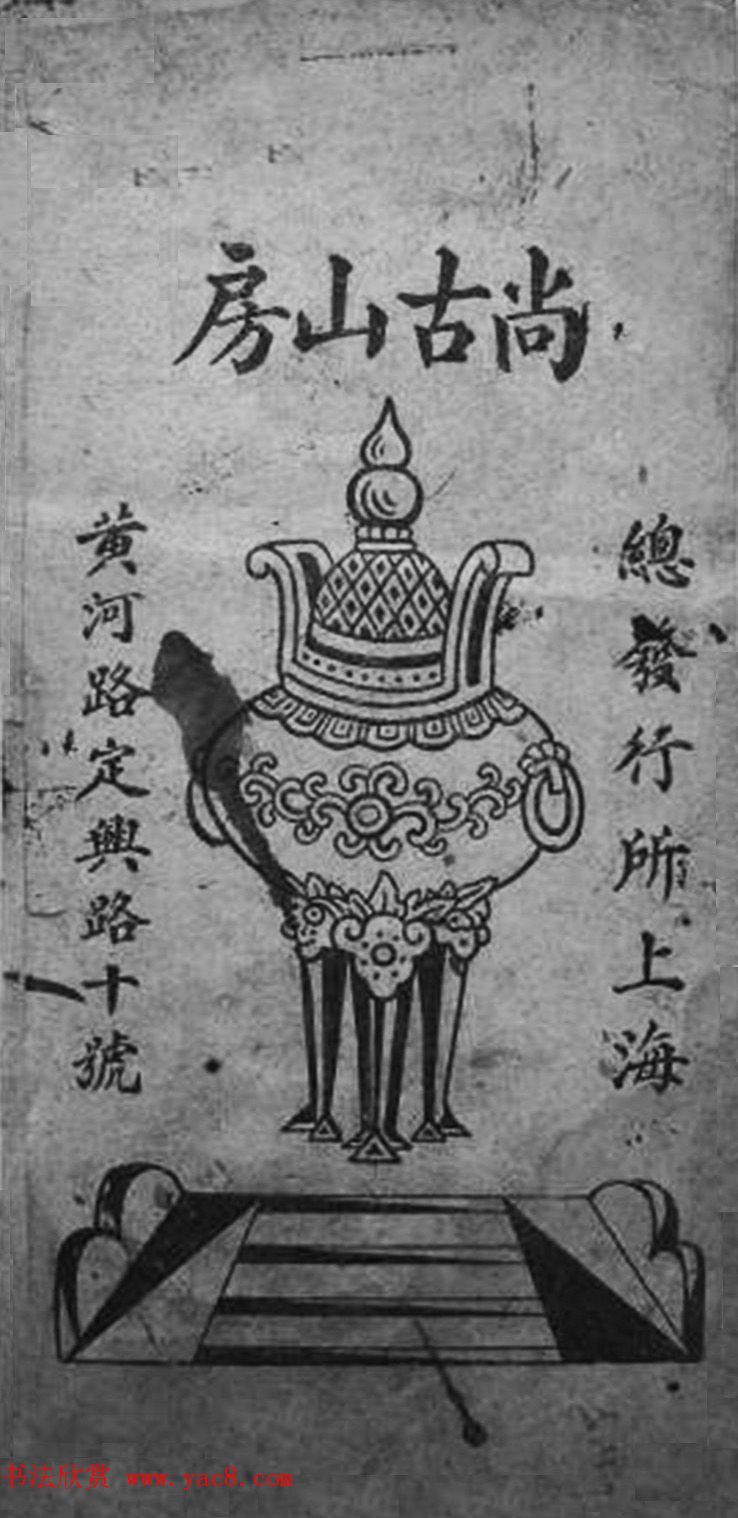 尚古山房
總發行所上海
黃河路定興路十號
书法欣赏 www.yac8.com